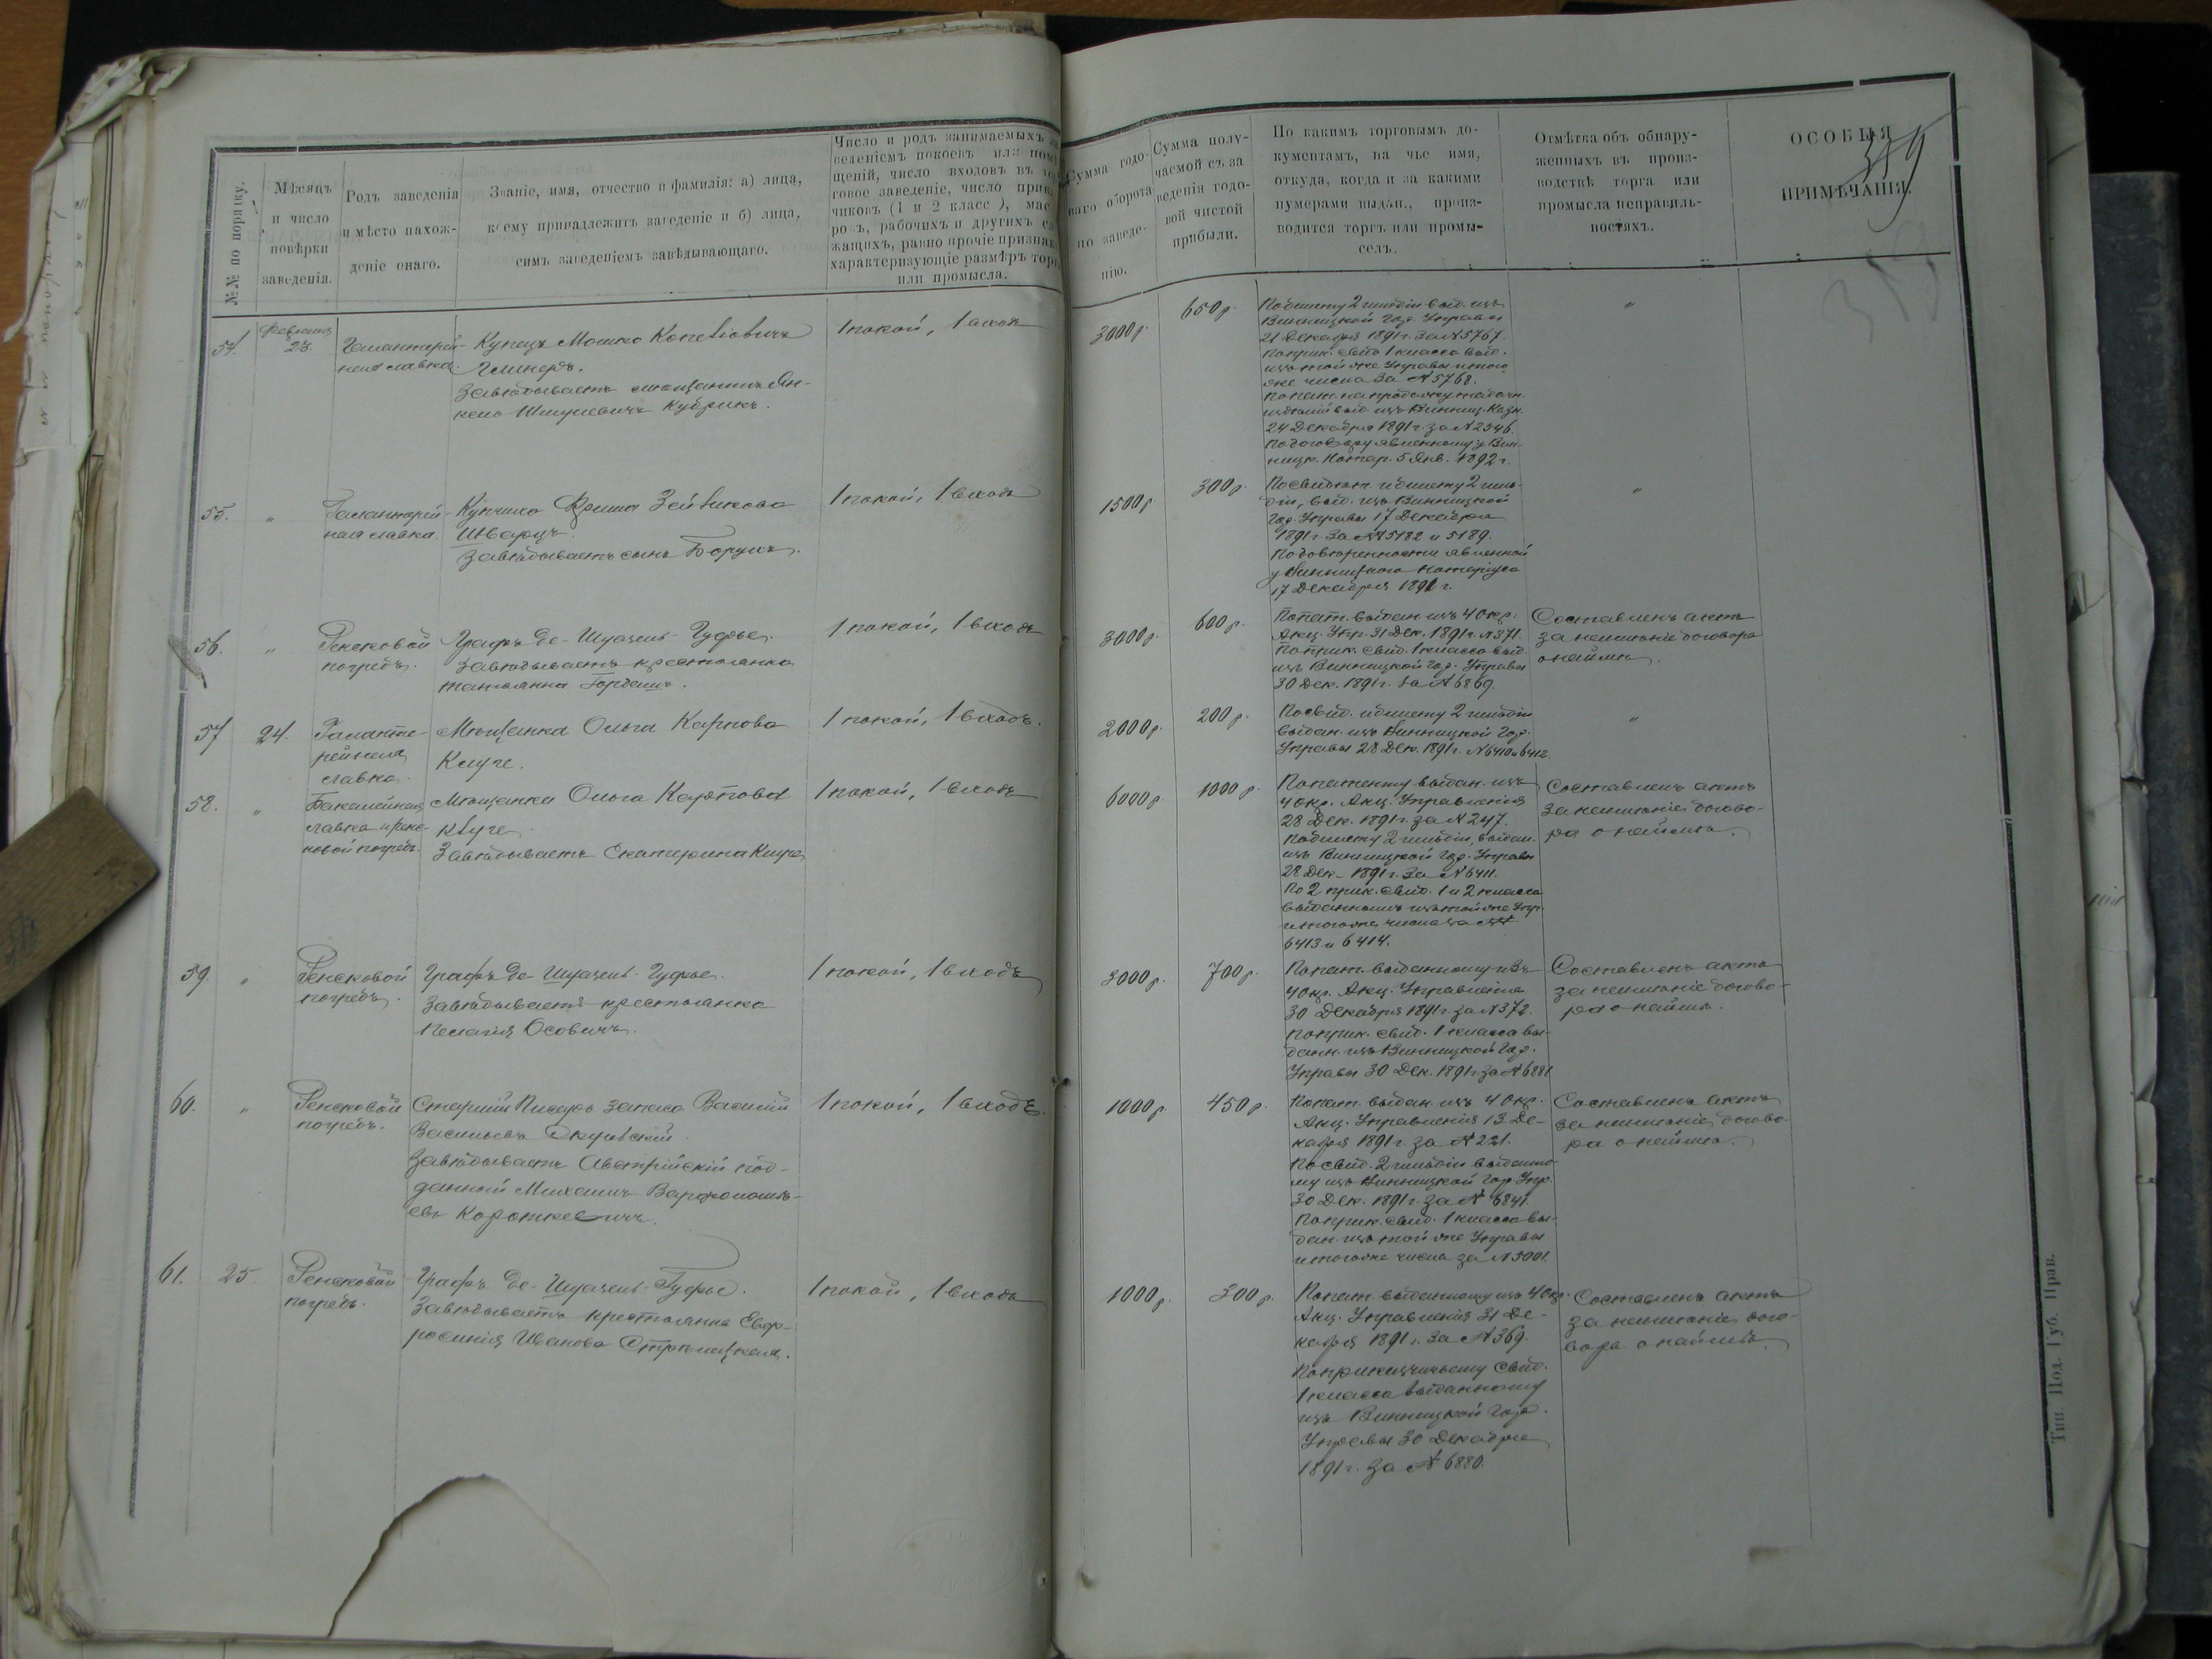 №№ по порядку.
Мѣсяцъ
и число
повѣрки
заведенія.
Родъ заведенія
и мѣсто нахож-
деніе онаго.
Званіе, имя, отчество и фамилія: а) лица,
коему принадлежитъ заведеніе и б) лица,
симъ заведеніемъ завѣдывающаго.
Число и родъ занимаемыхъ
веденіемъ покоевъ или
щеній, число входовъ въ
говое заведеніе, число
чиковъ (1 и 2 класс),
рабочихъ и другихъ
жащихъ, равно прочіе
характеризующіе размѣръ
или промысла.
Сумма годо-
ваго оборота
по заведе-
нію.
Сумма полу-
чаемой съ за
веденія годо-
вой чистой
прибыли.
По какимъ торговымъ до-
кументамъ, на чье имя,
откуда, когда и за какими
нумерами выдан., произ-
водится торгъ или промы-
селъ.
Отмѣтка объ обнару-
женныхъ въ произ-
водствѣ торга или
промысла неправиль-
ностяхъ.
ОСОБЫЯ
ПРИМѢЧАНІЯ.
54.
Февраля
23.
Галантерей-
ная лавка.
Купецъ Мошко Копелiовичъ
Глинеръ.
Завѣдываетъ мѣщанинъ Ян-
кель Шмулевичъ Кубрикъ.
1 покой, 1 входъ
3000 р.
650 р.
По билету 2 гильдіи выд. изъ
Винницкой Гор. Управы
21 Декабря 1891 г. за № 5767.
По прик. свид. 1 класса выд.
изъ той же Управы и того
же числа за № 5768.
По пат. на продажу табачн.
издѣлій выд. изъ Винниц. Казн.
24 Декабря 1891 г. за № 2546.
По договору явленному у Вин-
ницк. Нотар. 5 Янв. 1892 г.
"
55.
"
Галантерей-
ная лавка.
Купчиха Фрима Зейликова
Шварцъ.
Завѣдываетъ сынъ Борухъ.
1 покой, 1 входъ
1500 р
300 р.
По свидѣт. и билету 2 гиль-
діи, выд. изъ Винницкой
Гор. Управы 17 Декабря
1891 г. за №№ 5182 и 5189.
По довѣренности явленной
у Винницкаго Нотаріуса
17 Декабря 1891 г.
"
56.
"
Ренсковой
погребъ.
Графъ де-Шуазель-Гуфье.
Завѣдываетъ крестьянка
Татьянна Гордешъ.
1 покой, 1 входъ
3000 р.
600 р.
По пат. выдан. изъ 4 окр.
Акц. Упр. 31 Дек. 1891 г. № 371.
По прик. свид. 1 класса выд.
изъ Винницкой Гор. Управы
30 Дек. 1891 г. за № 6869.
Составленъ актъ
за неимѣніе договора
о наймѣ.
57
24.
Галанте-
рейная
лавка.
Мѣщанка Ольга Карпова
Клуге.
1 покой, 1 входъ.
2000 р.
200 р.
По свид. и билету 2 гильдіи
выдан. изъ Винницкой Гор.
Управы 28 Дек. 1891 г. № 6410 и 6412.
"
58.
"
Бакалейная
лавка и ренс-
ковой погребъ.
Мѣщанка Ольга Карпова
Клуге.
Завѣдываетъ Екатерина Клуге
1 покой, 1 входъ
6000 р.
1000 р.
По патенту выдан. изъ
4 окр. Акц. Управленія
28 Дек. 1891 г. за № 247.
По билету 2 гильдіи, выдан.
изъ Винницкой Гор. Управы
28 Дек. 1891 г. за № 6411.
По 2 прик. свид. 1 и 2 класса
выданнымъ изъ той же Упр.
и того же числа за №№
6413 и 6414.
Составленъ актъ
за неимѣніе догово-
ра о наймѣ.
59.
"
Ренсковой
погребъ.
Графъ де Шуазель-Гуфье.
Завѣдываетъ крестьянка
Пелагія Осовичъ.
1 покой, 1 входъ
3000 р.
700 р.
По пат. выданному изъ
4 окр. Акц. Управленія
30 Декабря 1891 г. за № 372.
По прик. свид. 1 класса вы-
данн. изъ Винницкой Гор.
Управы 30 Дек. 1891 г. за № 6881
Составленъ актъ
за неимѣніе догово-
ра о наймѣ.
60.
"
Ренсковой
погребъ.
Старшій Писарь запаса Василій
Васильевъ
Завѣдываетъ Австрійскій под-
данный Михаилъ Варфоломѣ-
евъ Короткевичъ.
1 покой, 1 входъ.
1000 р.
450 р.
По пат. выдан. изъ 4 окр.
Акц. Управленія 13 Де-
кабря 1891 г. за № 221.
По свид. 2 гильдіи выданно-
му изъ Винницкой Гор. Упр.
30 Дек. 1891 г. за № 6841.
По прик. свид. 1 класса вы-
дан. изъ той же Управы
и того же числа за № 5001.
Составленъ актъ
за неимѣніе догово-
ра о наймѣ.
61.
25.
Ренсковой
погребъ.
Графъ де-Шуазель-Гуфье.
Завѣдываетъ крестьянка Евф-
росинія Иванова Стрѣлецкая.
1 покой, 1 входъ
1000 р.
300 р.
По пат. выданному изъ 4 окр.
Акц. Управленія 31 Де-
кабря 1891 г. за № 369.
По приказчичьему свид.
1 класса выданному
изъ Винницкой Гор.
Управы 30 Декабря
1891 г. за № 6880.
Составленъ актъ
за неимѣніе дого-
вора о наймѣ.
Тип. Под. Губ. Прав.